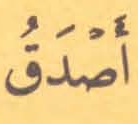 أَصْدَقُ